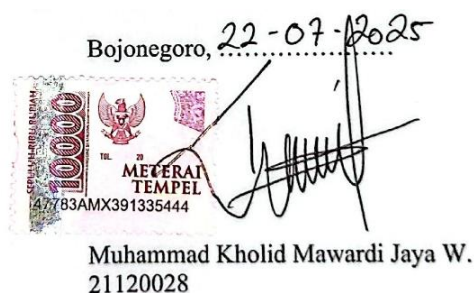 Bojonegoro, 22-07-2025
SEPULUH RIBU RUPIAH
10000
TGL. 20
METERAI
TEMPEL
47783AMX391335444
Muhammad Kholid Mawardi Jaya W.
21120028